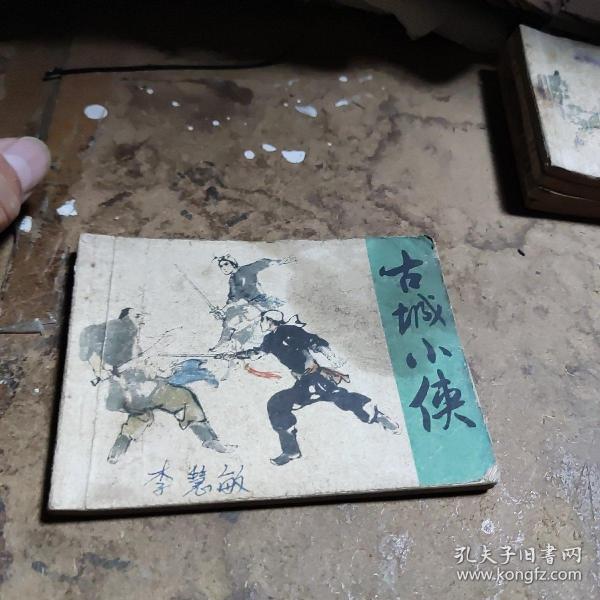 古城小侠
李慧敏
孔夫子旧书网
www.kongfz.com